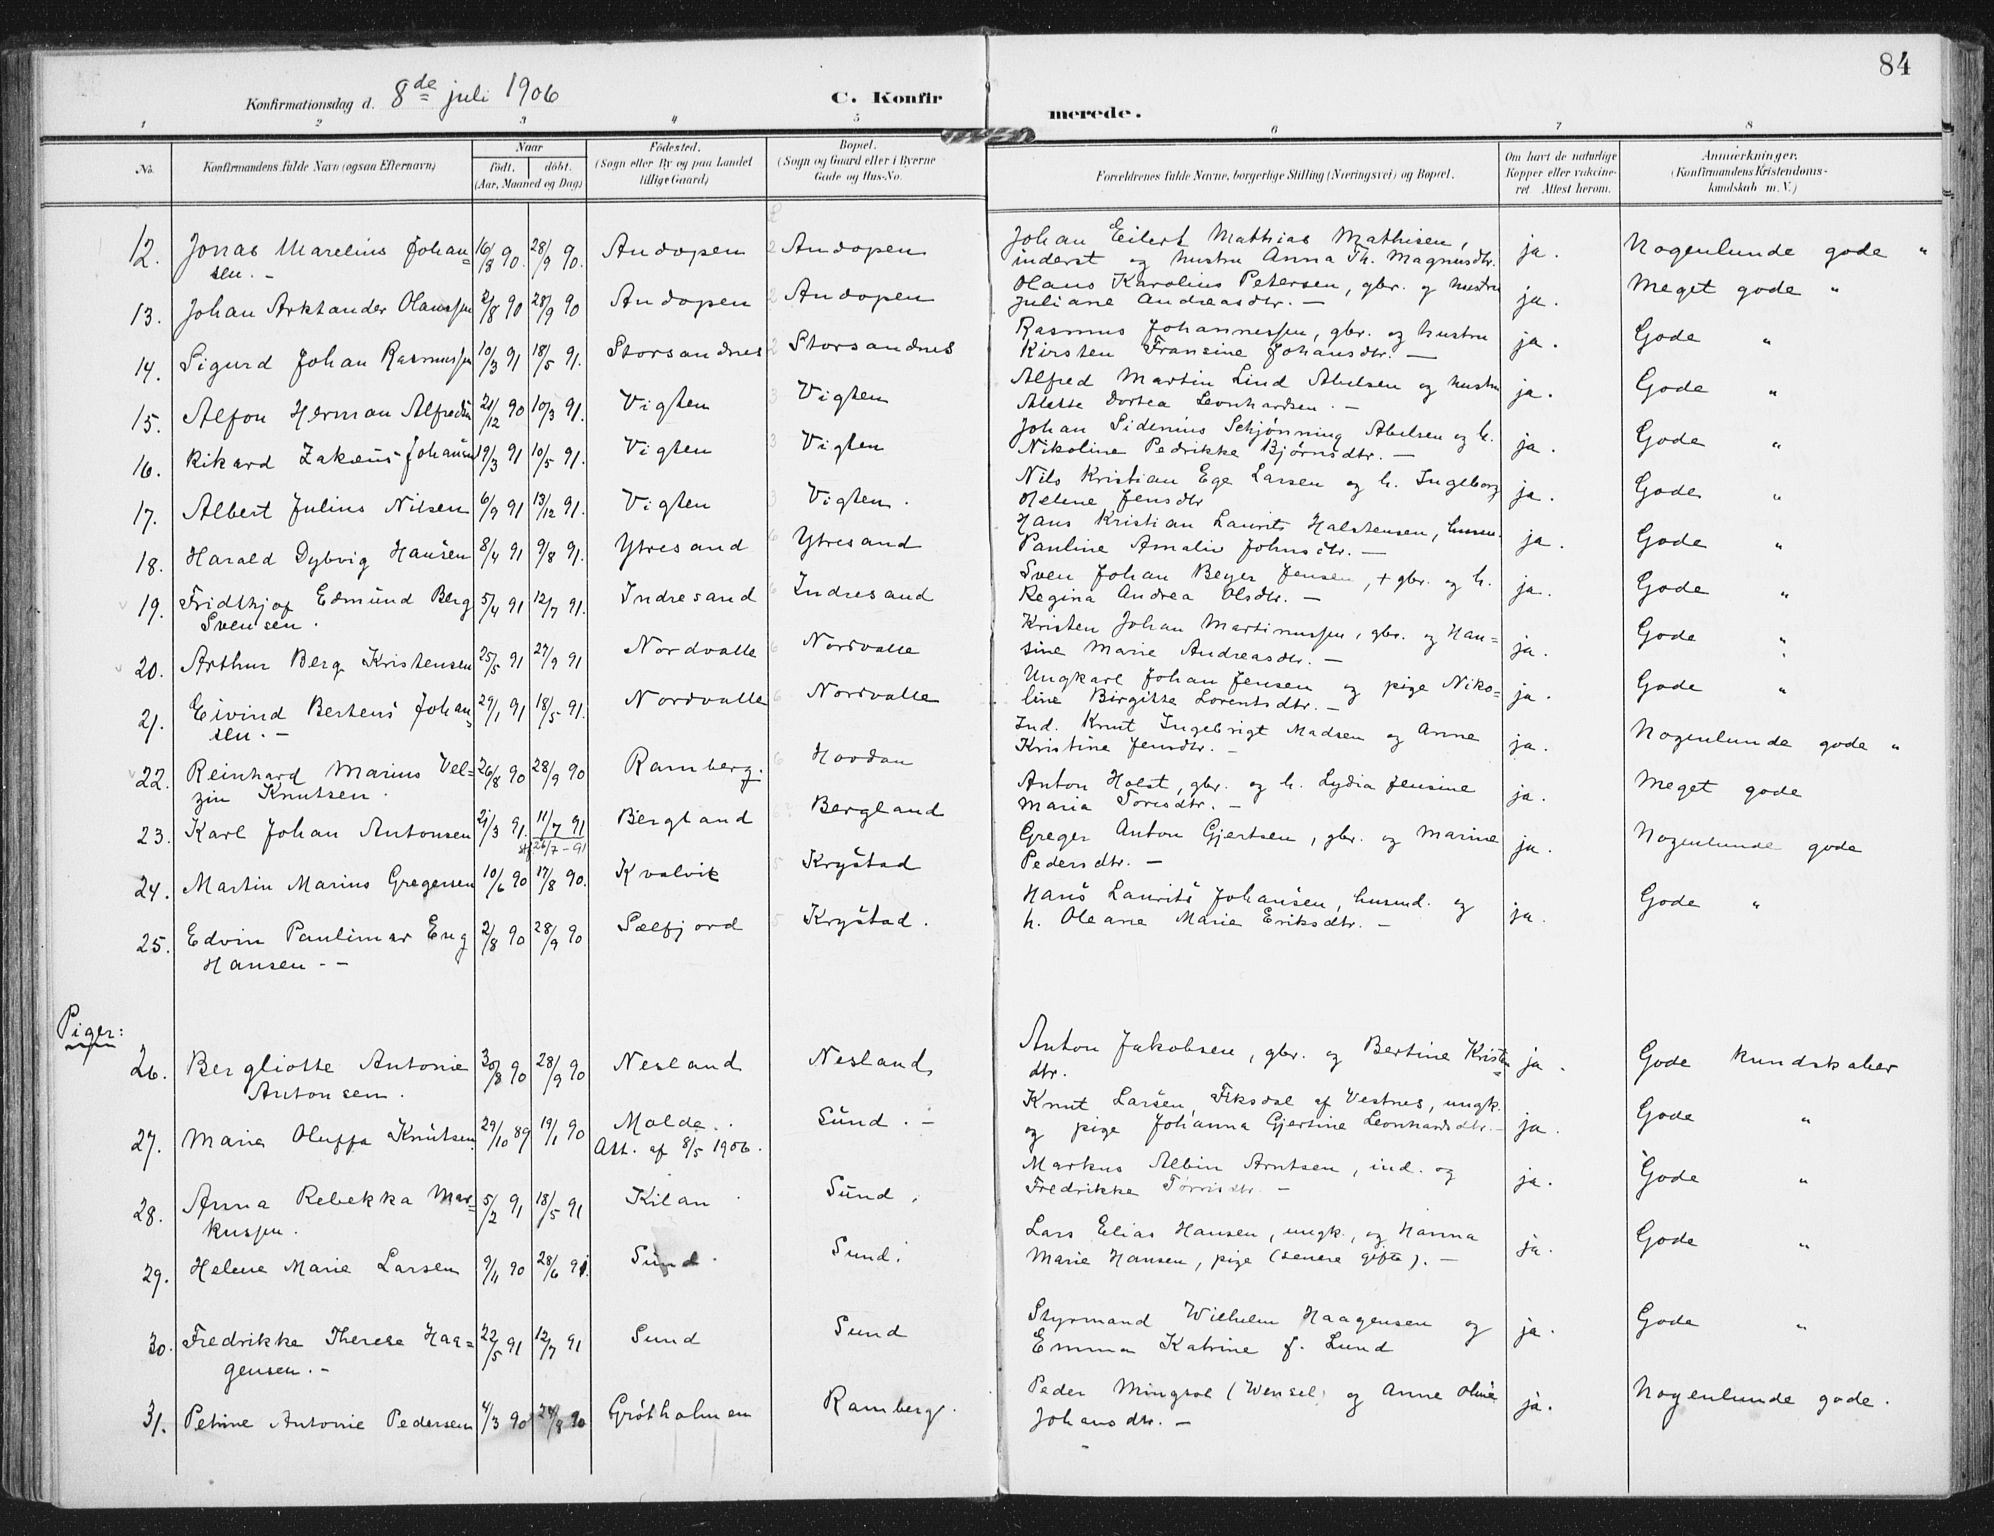 84
Konfirmationsdag d. 8de juli 1906 C. Konfirmerede.
1 2 3 4 5 6 7 8
No. Konfirmandens fulde Navn (ogsaa Efternavn) Naar födt. döbt. (Aar, Maaned og Dag) Födested. (Sogn eller By og paa Landet tillige Gaard) Bopæl. (Sogn og Gaard eller i Byerne Gade og Hus-No. Forældrenes fulde Navne, borgerlige Stilling (Næringsvei) og Bopæl. Om havt de naturlige Kopper eller vakcineret Attest herom. Anmærkninger. (Konfirmandens Kristendomskundskab m. V.)
12. Jonas Marelius Johan= 16/8 90. 28/9 90. Andopen 2 Andopen Johan Eilert Mathias Mathisen, ja. Nogenlunde gode "
sen. - inderst og hustru Anna Th. Magnusdtr.
13. Johan Arktander Olaussen 2/8 90 28/9 90 Andopen 2 Andopen Olaus Karolius Petersen, gbr. og hustru ja. Meget gode "
Juliane Andreasdtr. -
14. Sigurd Johan Rasmussen 10/3 91 18/5 91. Storsandnes 2 Storsandnes Rasmus Johannessen, gbr. og hustru ja. Gode "
Kirsten Fransine Johansdtr. -
15. Alfon Herman Alfredsen 21/12 90 10/3 91. Vigten 3 Vigten Alfred Martin Lind Abelsen og hustru ja. Gode "
Alette Dortea Leonhardsen. -
16. Rikard Zakæus Johansen 19/3 91 10/5 91. Vigten 3 Vigten Johan Sidenius Schjønning Abelsen og h. ja. Gode "
Nikoline Pedrikke Bjørnsdtr. -
17. Albert Julius Nilsen 6/9 91 13/12 91. Vigten Vigten. Nils Kristian Ege Larsen og h. Ingeborg ja. Gode "
Helene Jensdtr
18. Harald Dybvig Hansen 8/4 91 9/8 91. Ytresand 6 Ytresand Hans Kristian Laurits Halstensen, husm. ja. Gode "
Pauline Amalie Johnsdtr. -
19. Fridthjof Edmund Berg 5/4 91 12/7 91. Indresand 6 Indresand Sven Johan Beyer Jensen, + gbr. og h. ja. Gode "
Svensen. Regina Andrea Olsdtr. -
20. Arthur Berg Kristensen 25/5 91 27/9 91 Nordvalle 6 Nordvalle Kristen Johan Martinussen, gbr. og Han= ja. Gode "
sine Marie Andreasdtr. -
21. Eivind Bertens Johan= 29/1 91 18/5 91. Nordvalle 6 Nordvalle Ungkarl Johan Jensen og pige Niko= ja. Gode "
sen. - line Birgitte Lorentsdtr. -
22. Reinhard Marius Vel= 26/8 90 28/9 90 Ramberg. 6 Hovdan Ind. Knut Ingebrigt Madsen og Anne ja. Nogenlunde gode "
zin Knutsen. Kristine Jensdtr. -
23. Karl Johan Antonsen 21/3 91. 11/7 91 Bergland Bergland Anton Holst, gbr. og h. Lydia Jensine ja. Meget gode
stf 26/7 - 91 Maria Toresdtr. -
24. Martin Marius Gregersen 10/6 90 17/8 90. Kvalvik 5 Krystad Greger Anton Gjertsen, gbr. og Marine ja. Nogenlunde gode
Pedersdtr. -
25. Edvin Paulimar Eng 2/8 90 28/9 90 Sælfjord 5 Krystad. Hans Laurits Johansen, husmd. og ja. Gode "
Hansen. - h. Oleane Marie Eriksdtr. -
Piger:
26. Bergliotte Antonie 30/8 90 28/9 90 Nesland Nesland Anton Jakobsen, gbr. og Bertine Kristen= ja. Gode kundskaber
Antonsen. dtr.
27. Marie Oluffa Knutsen 29/10 89 19/1 90 Molde. Sund. - Knut Larsen Fiksdal af Vestnes, ungk. ja. Gode "
Att. af 8/5 1906. og pige Johanna Gjertine Leonhardsdtr. -
28. Anna Rebekka Mar= 5/2 91 18/5 91 Kilan Sund. Markus Albin Arntsen, ind. og ja. Gode "
kussen. Fredrikke Tørrisdtr. -
29. Helene Marie Larsen 9/11 90 28/6 91. Sund. Sund. Lars Elias Hansen, ungk., og Hanna ja. Gode "
Marie Hansen, pige (senere gifte). -
30. Fredrikke Therese Haa= 22/5 91 12/7 91 Sund Sund Styrmand Wilhelm Haagensen og ja. Gode "
gensen. - Emma Katrine f. Lund
31. Petrine Antonie Pedersen 4/3 90 24/8 90 Grøtholmen Ramberg. Peder Mingsol (Wensel) og Anne Oline ja. Nogenlunde gode.
Johansdtr. -